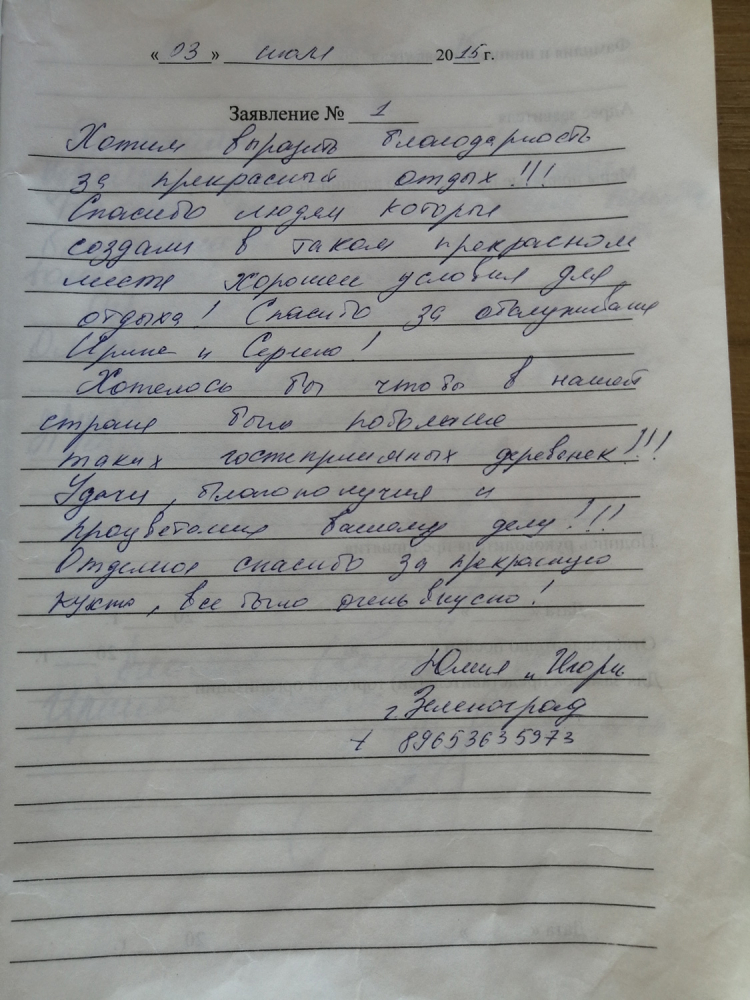 « 03 » июля 2015 г.
Заявление № 1
Хотим выразить благодарность
за прекрасный отдых!!!
Спасибо людям которые
создали в таком прекрасном
месте хорошие условия для
отдыха! Спасибо за обслуживание
Ирине и Сергею!
Хотелось бы чтобы в нашей
стране было побольше
таких гостеприимных деревенек!!!
Удачи, благополучия и
процветания вашему делу!!!
Отдельное спасибо за прекрасную
кухню, все было очень вкусно!
Юлия и Игорь
г. Зеленоград
т 89653635973